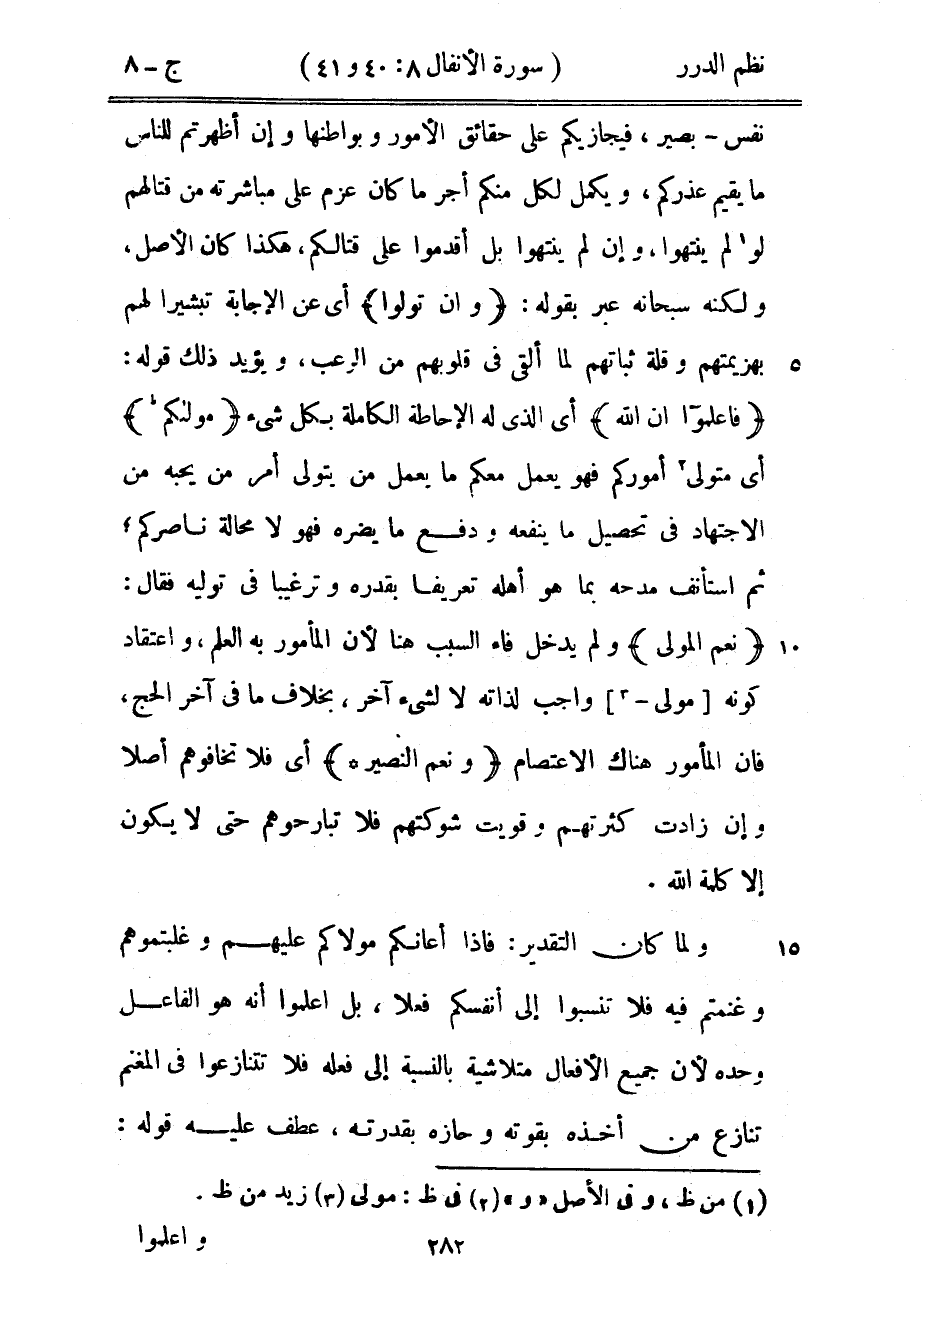 نظم الدرر ( سورة الأنفال ٨: ٤٠ و ٤١ ) ج - ٨
نفس - بصير ، فيجازيكم على حقائق الأمور و بواطنها و إن أظهرتم للناس
ما يقيم عذركم ، و يكمل لكل منكم أجر ما كان عزم على مباشرته من قتالهم
لو١ لم ينتهوا ، و إن لم ينتهوا بل أقدموا على قتالكم، هكذا كان الأصل ،
و لكنه سبحانه عبر بقوله : ﴿ و ان تولوا ﴾ أى عن الإجابة تبشيرا لهم
٥ بهزيمتهم و قلة ثباتهم لما ألقى فى قلوبهم من الرعب ، و يؤيد ذلك قوله :
﴿ فاعلموٓا ان الله ﴾ أى الذى له الإحاطة الكاملة بكل شىء ﴿ مولٰىكم ط ﴾
أى متولى٢ أموركم فهو يعمل معكم ما يعمل من يتولى أمر من يحبه من
الاجتهاد فى تحصيل ما ينفعه و دفع ما يضره فهو لا محالة ناصركم ؛
ثم استأنف مدحه بما هو أهله تعريفا بقدره و ترغيبا فى توليه فقال :
١٠ ﴿ نعم المولى ﴾ و لم يدخل فاء السبب هنا لأن المأمور به العلم ، و اعتقاد
كونه [ مولى - ٣ ] واجب لذاته لا لشىء آخر ، بخلاف ما فى آخر الحج ،
فان المأمور هناك الاعتصام ﴿ و نعم النصير * ﴾ أى فلا تخافوهم أصلا
و إن زادت كثرتهم و قويت شوكتهم فلا تبارحوهم حتى لا يكون
إلا كلمة الله .
١٥ و لما كان التقدير : فاذا أعانكم مولاكم عليهم و غلبتموهم
و غنمتم فيه فلا تنسبوا إلى أنفسكم فعلا ، بل اعلموا أنه هو الفاعل
وحده لأن جميع الأفعال متلاشية بالنسبة إلى فعله فلا تتنازعوا فى المغنم
تنازع من أخذه بقوته و حازه بقدرته ، عطف عليه قوله :
(١) من ظ ، و فى الأصل « و » (٢) فى ظ : مولى (٣) زيد من ظ .
٢٨٢ و اعلموا